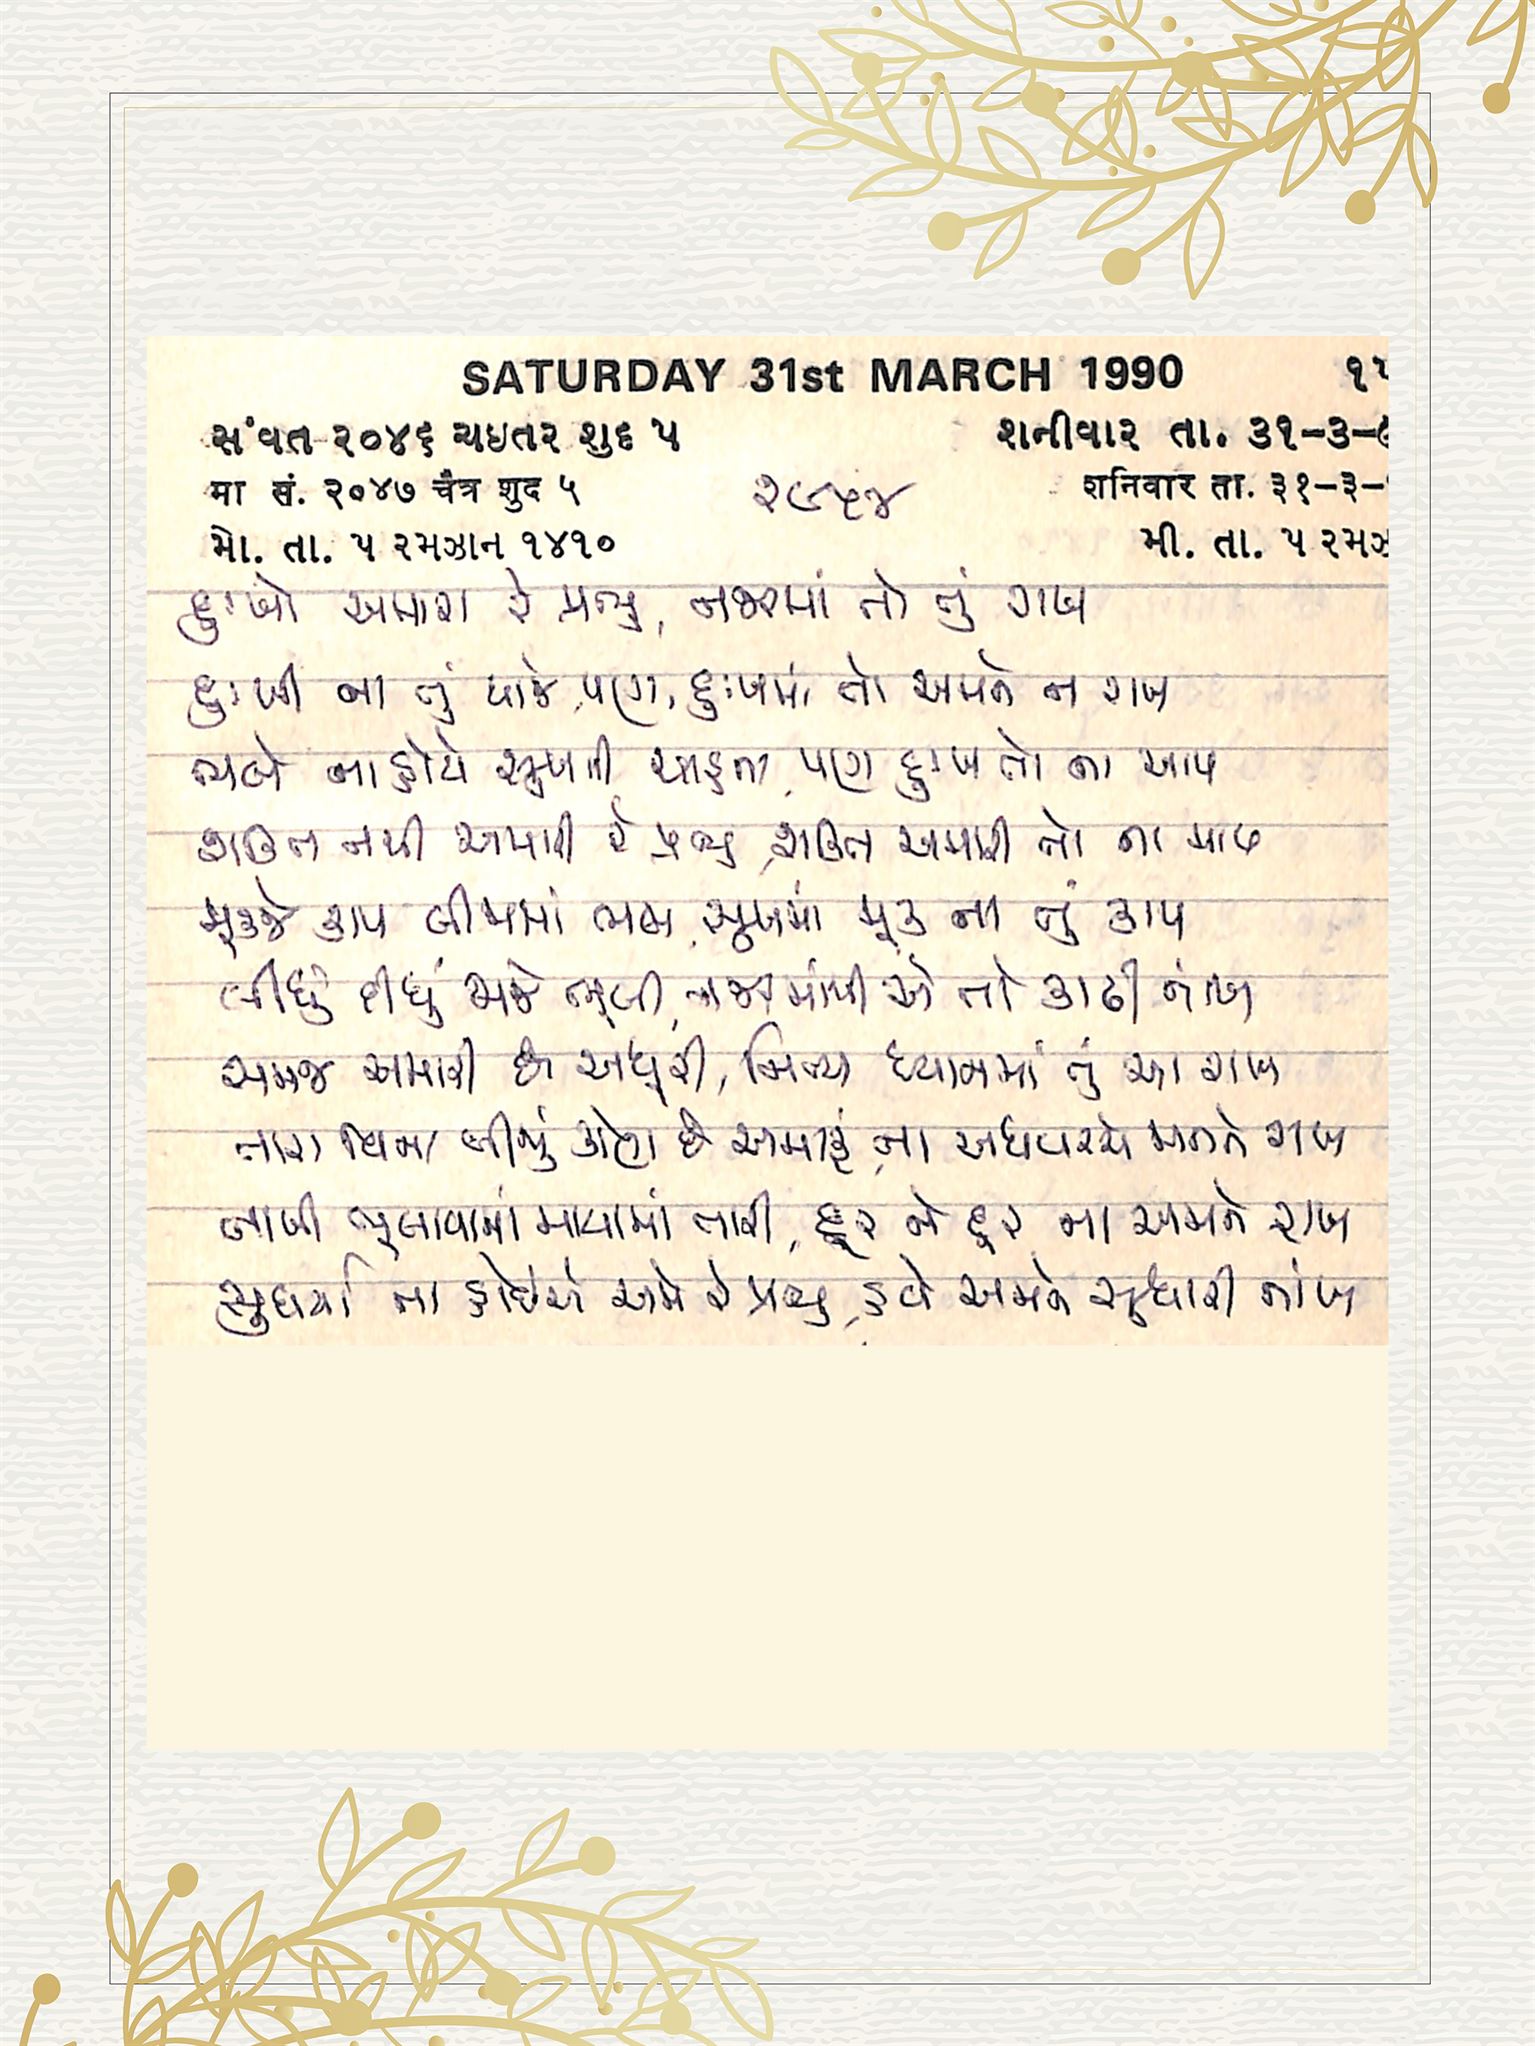 SATURDAY 31st MARCH 1990
સંવત ૨૦૪૬ ચઇતર શુદ ૫ શનીવાર તા. ૩૧-૩-
मा सं. २०४७ चैत्र शुद ५ ૨૯૫૪ शनिवार ता. ३१-३-
મો. તા. ૫ રમઝાન ૧૪૧૦ મી. તા. ૫ રમઝ
દુઃખો અમારા રે પ્રભુ, નજરમાં તો તું રાખ
દુઃખી ના તું થાજે પણ, દુઃખમાં તો અમને ન રાખ
ભલે ના હોયે સુખની ચાહના, પણ દુઃખ તો ના આપ
શક્તિ નથી અમારી રે પ્રભુ, શક્તિ અમારી તો ના માપ
મૂકજે કાપ બીજામાં ભલે, સુખમાં મૂક ના તું કાપ
કીધું દીધું અમે ભૂલી, નજરમાંથી એ તો કાઢી નાંખ
સમજ અમારી છે અધૂરી, નિત્ય ધ્યાનમાં તું આ રાખ
તારા વિના બીજું કોણ છે અમારું, ના અધવચ્ચે અમને રાખ
નાખી ભુલાવામાં માયામાં તારી, દૂર ને દૂર ના અમને રાખ
સુધર્યા ના હોઈએ અમે રે પ્રભુ, હવે અમને સુધારી નાંખ